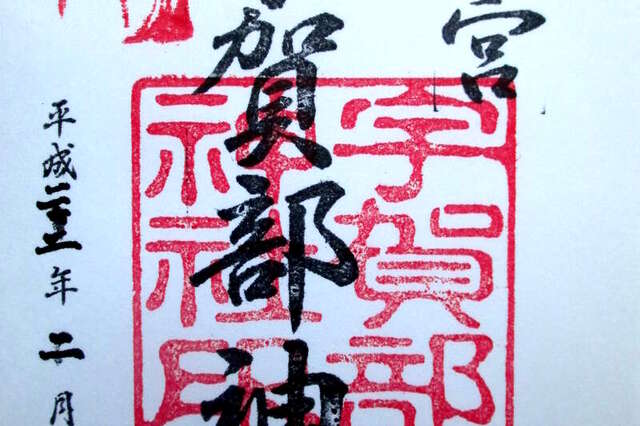 宮
賀部神
平成二五年二月
宇賀部
神社印